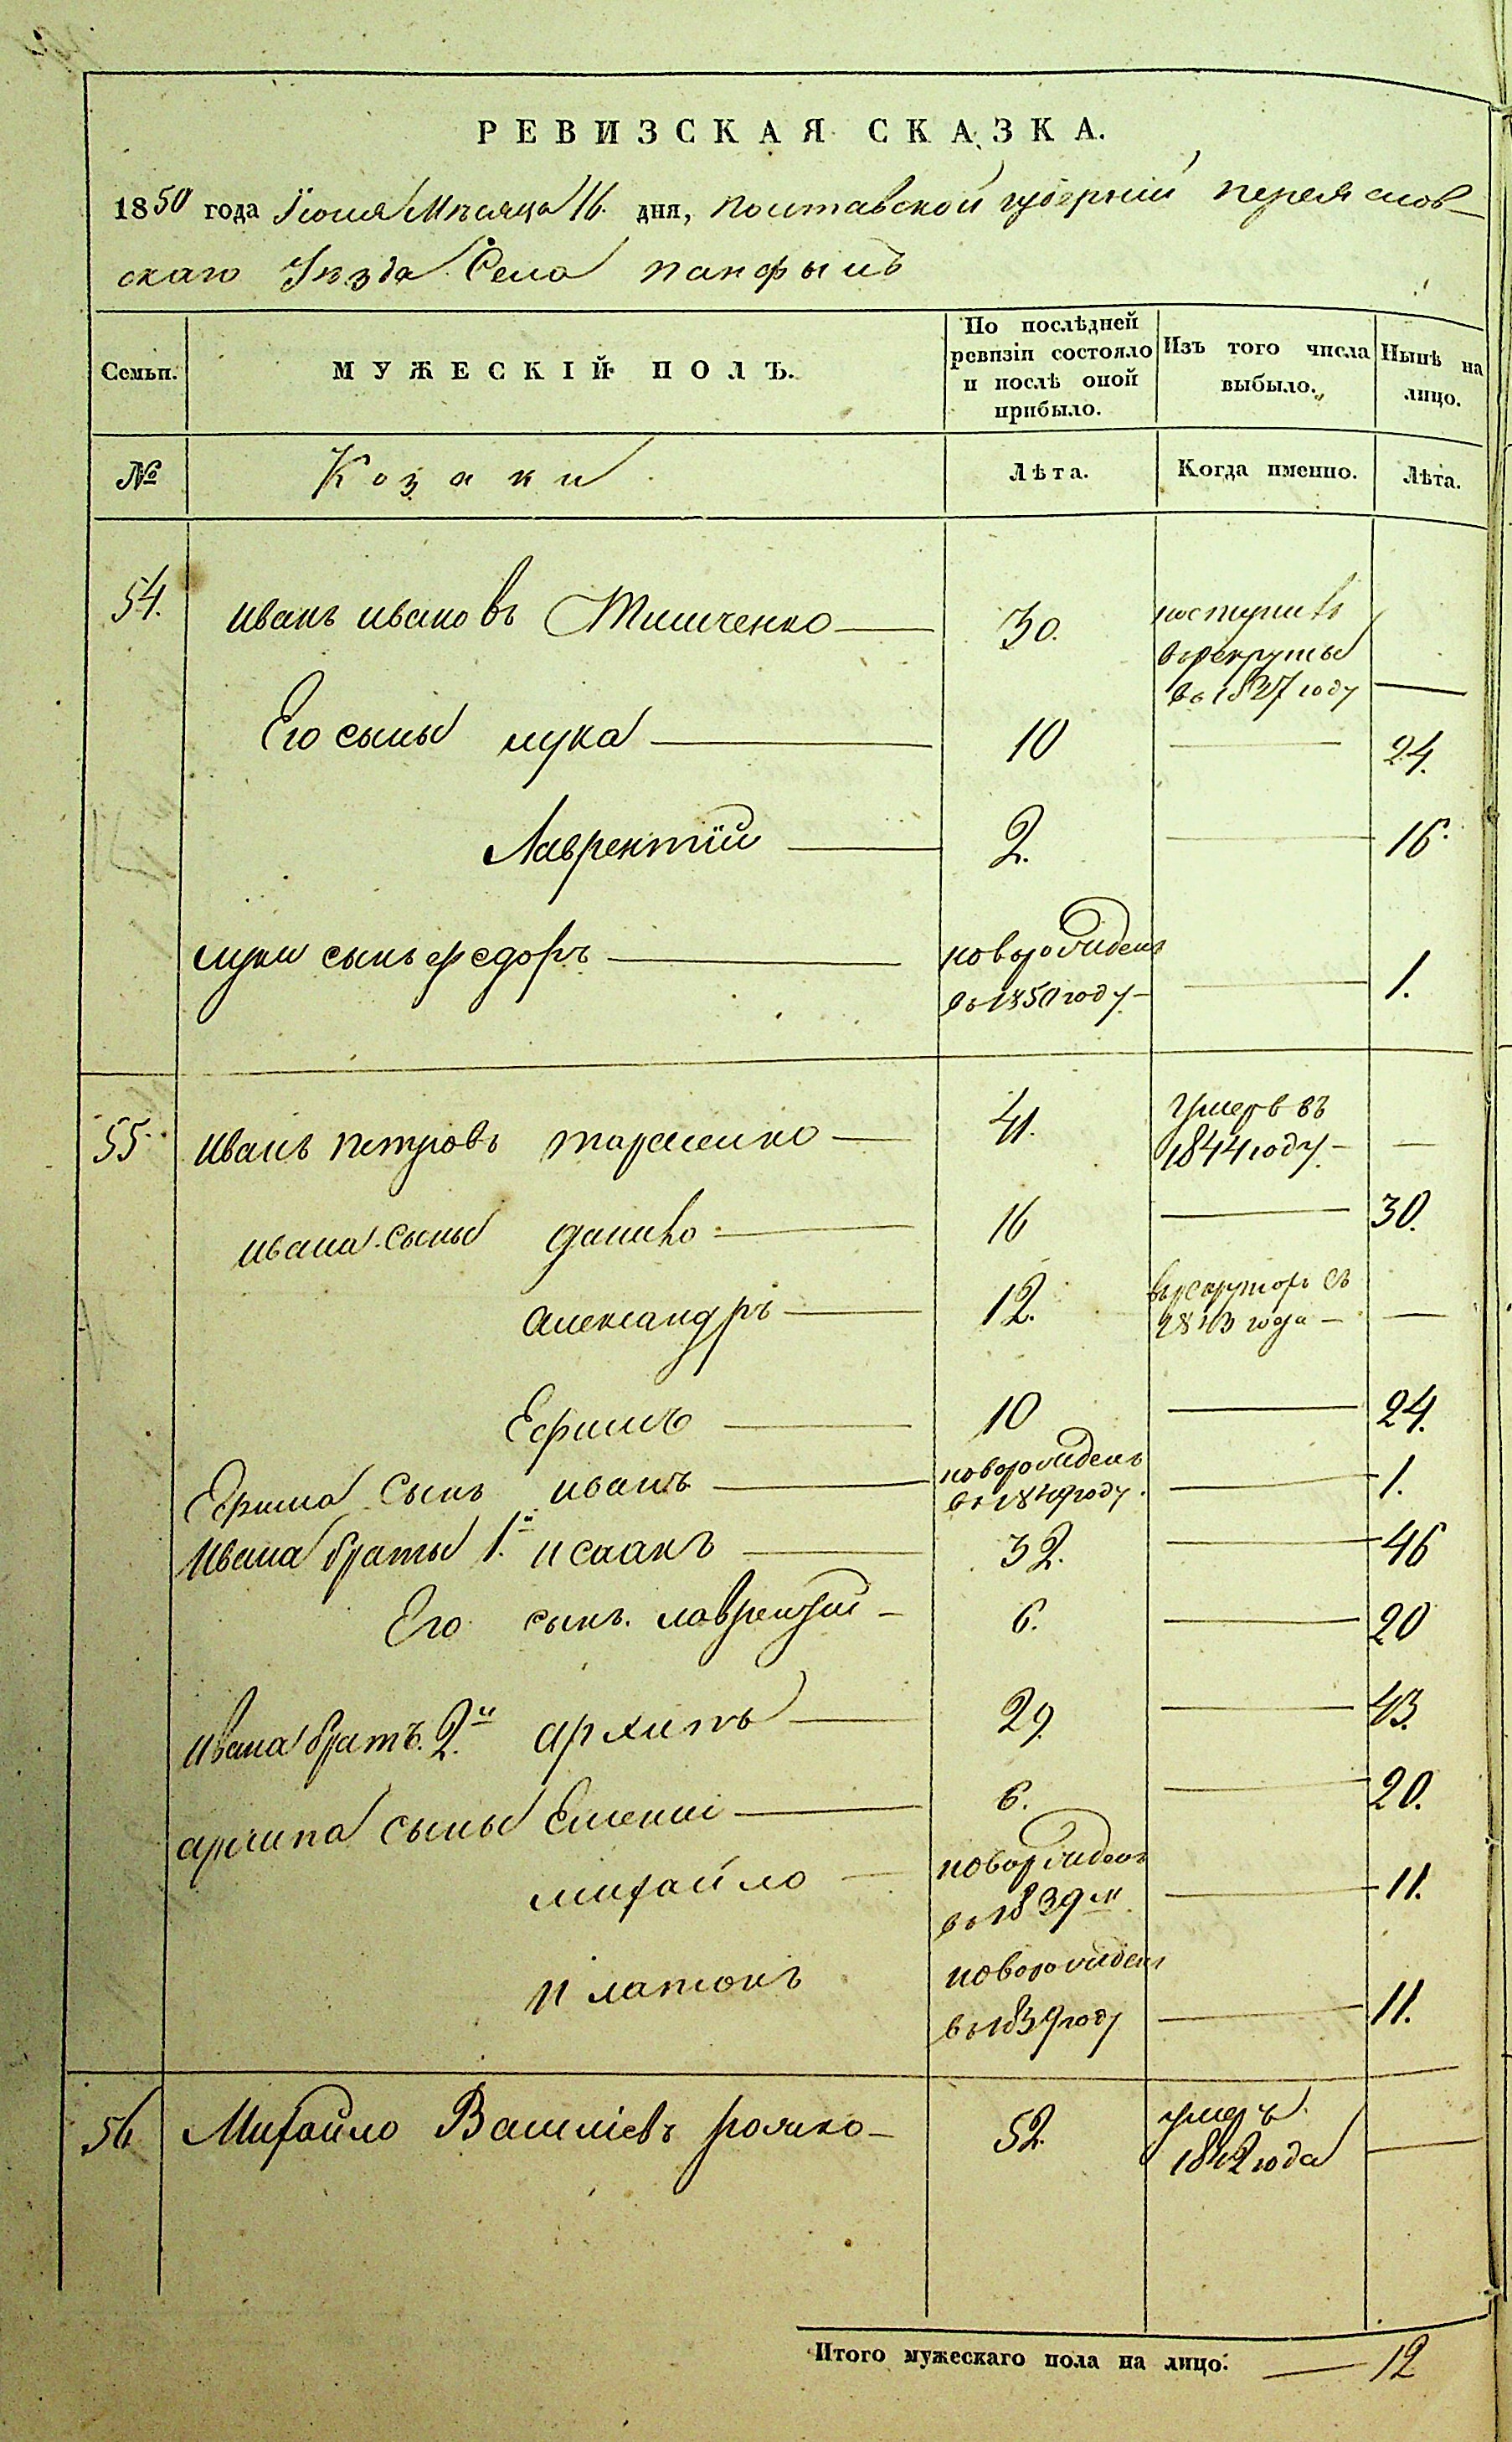 РЕВИЗСКАЯ СКАЗКА.
1850 года Іюня Мѣсяца 16. дня, полтавской губерніи переяслов-
скаго Уѣзда Села панфылъ
Семьи.
МУЖЕСКІЙ ПОЛЪ.
По послѣдней
ревизіи состояло
и послѣ оной
прибыло.
Изъ того числа
выбыло.
Нынѣ на
лицо.
№
Козаки
Лѣта.
Когда именно.
Лѣта.
54. иванъ ивановъ Тимченко 30. поступилъ
в рекруты
въ 1837 году
Его сыны лука 10 24.
Лаврентій 2. 16.
луки сынъ федоръ новорожденъ
въ 1850 году 1.
55. иванъ петровъ тарасенко 41. Умеръ въ
1844 году
ивана сыны данило 16 30.
александръ 12. в рекрутахъ съ
1843 года
Ефимъ 10 24.
Ефима сынъ иванъ новорожденъ
въ 1849 году. 1.
Ивана браты 1.й исаакъ 32. 46
Его сынъ. лаврентій 6. 20
ивана братъ. 2.й архипъ 29. 43.
архипа сыны 6. 20.
михайло новорожденъ
въ 1839 м 11.
платонъ новорожденъ
въ 1839 году 11.
56 Михайло Василіевъ 52. умеръ
1842 года
Итого мужескаго пола на лицо. 12